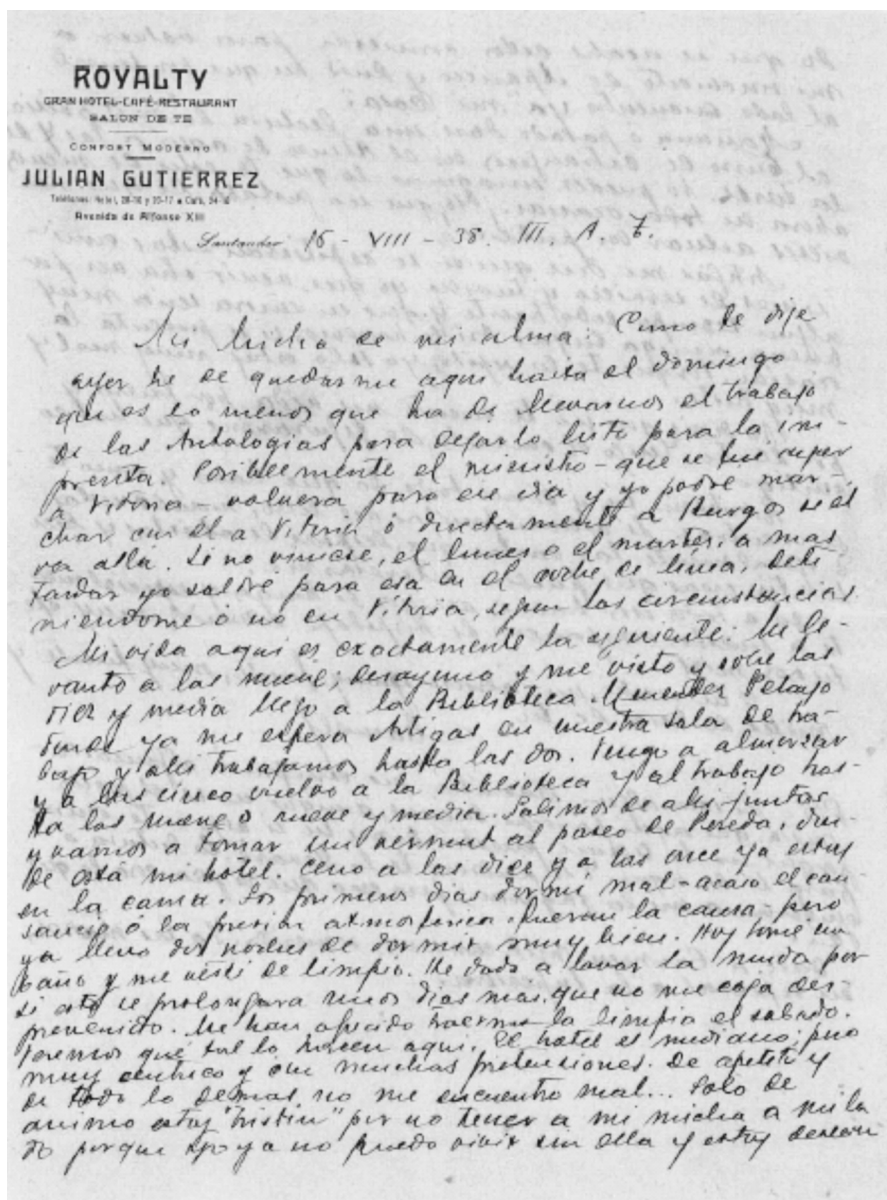 ROYALTY
GRAN HOTEL-CAFÉ-RESTAURANT
SALON DE TE
CONFORT MODERNO
JULIAN GUTIERREZ
Teléfonos: Hotel, y Café,
Avenida de Alfonso XIII
Santander 16 - VIII - 38. III. A. T.
Mi de mi alma: Como te dije
ayer he de quedarme aqui hasta el domingo
que es lo menos que ha de llevarnos el trabajo
de las Antologias para dejarlo listo para la im-
prenta. Posiblemente el ministro - que se fue ayer
a Vitoria - volvera para ese dia y yo podré mar-
char con él a Vitoria ó directamente a Burgos si el
va allá. Si no viniese, el lunes o el martes, a mas
tardar yo saldré para esa en el coche de linea, dete
niendome ó no en Vitoria, segun las circunstancias.
Mi vida aqui es exactamente la siguiente: Me le-
vanto a las nueve; desayuno y me visto y sobre las
diez y media llego a la Biblioteca Menendez Pelayo
donde ya me espera Artigas en nuestra sala de tra-
bajo y alli trabajamos hasta las dos. Vengo a almorzar
y a las cinco vuelvo a la Biblioteca y al trabajo has-
ta las nueve o nueve y media. Salimos de alli juntos
y vamos a tomar un vermut al paseo de Pereda, don-
de está mi hotel. Ceno a las diez y a las once ya estoy
en la cama. Los primeros dias dormi mal - acaso el can
sancio ó la presion atmosferica fueran la causa - pero
ya llevo dos noches de dormir muy bien. Hoy tomé un
baño y me vestí de limpio. He dado a lavar la muda por
si esto se prolongara unos dias mas, que no me coja des
prevenido. Me han ofrecido traerme la limpia el sabado.
Veremos qué tal lo hacen aqui. El hotel es mediano; pero
muy centrico y con muchas pretensiones. De apetito y
de todo lo demas no me encuentro mal... Solo de
animo estoy "tristin" por no tener a mi micha a mi la
do porque yo ya no puedo vivir sin ella y estoy desean